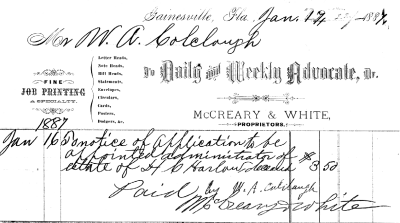 Gainesville, Fla. Jan. 1887.
Mr W. A. Colclough
To Daily and Weekly Advocate, Dr.
FINE
JOB PRINTING
A SPECIALTY.
Letter Heads,
Note Heads,
Bill Heads,
Statements,
Envelopes,
Circulars,
Cards,
Posters,
Dodgers, &c.
McCREARY & WHITE,
PROPRIETORS.
1887
Jan 16 To notice of application to be
appointed administrator of $
estate of C Harlow deceased 3 50
Paid by W. A. Colclough
McCreary & White